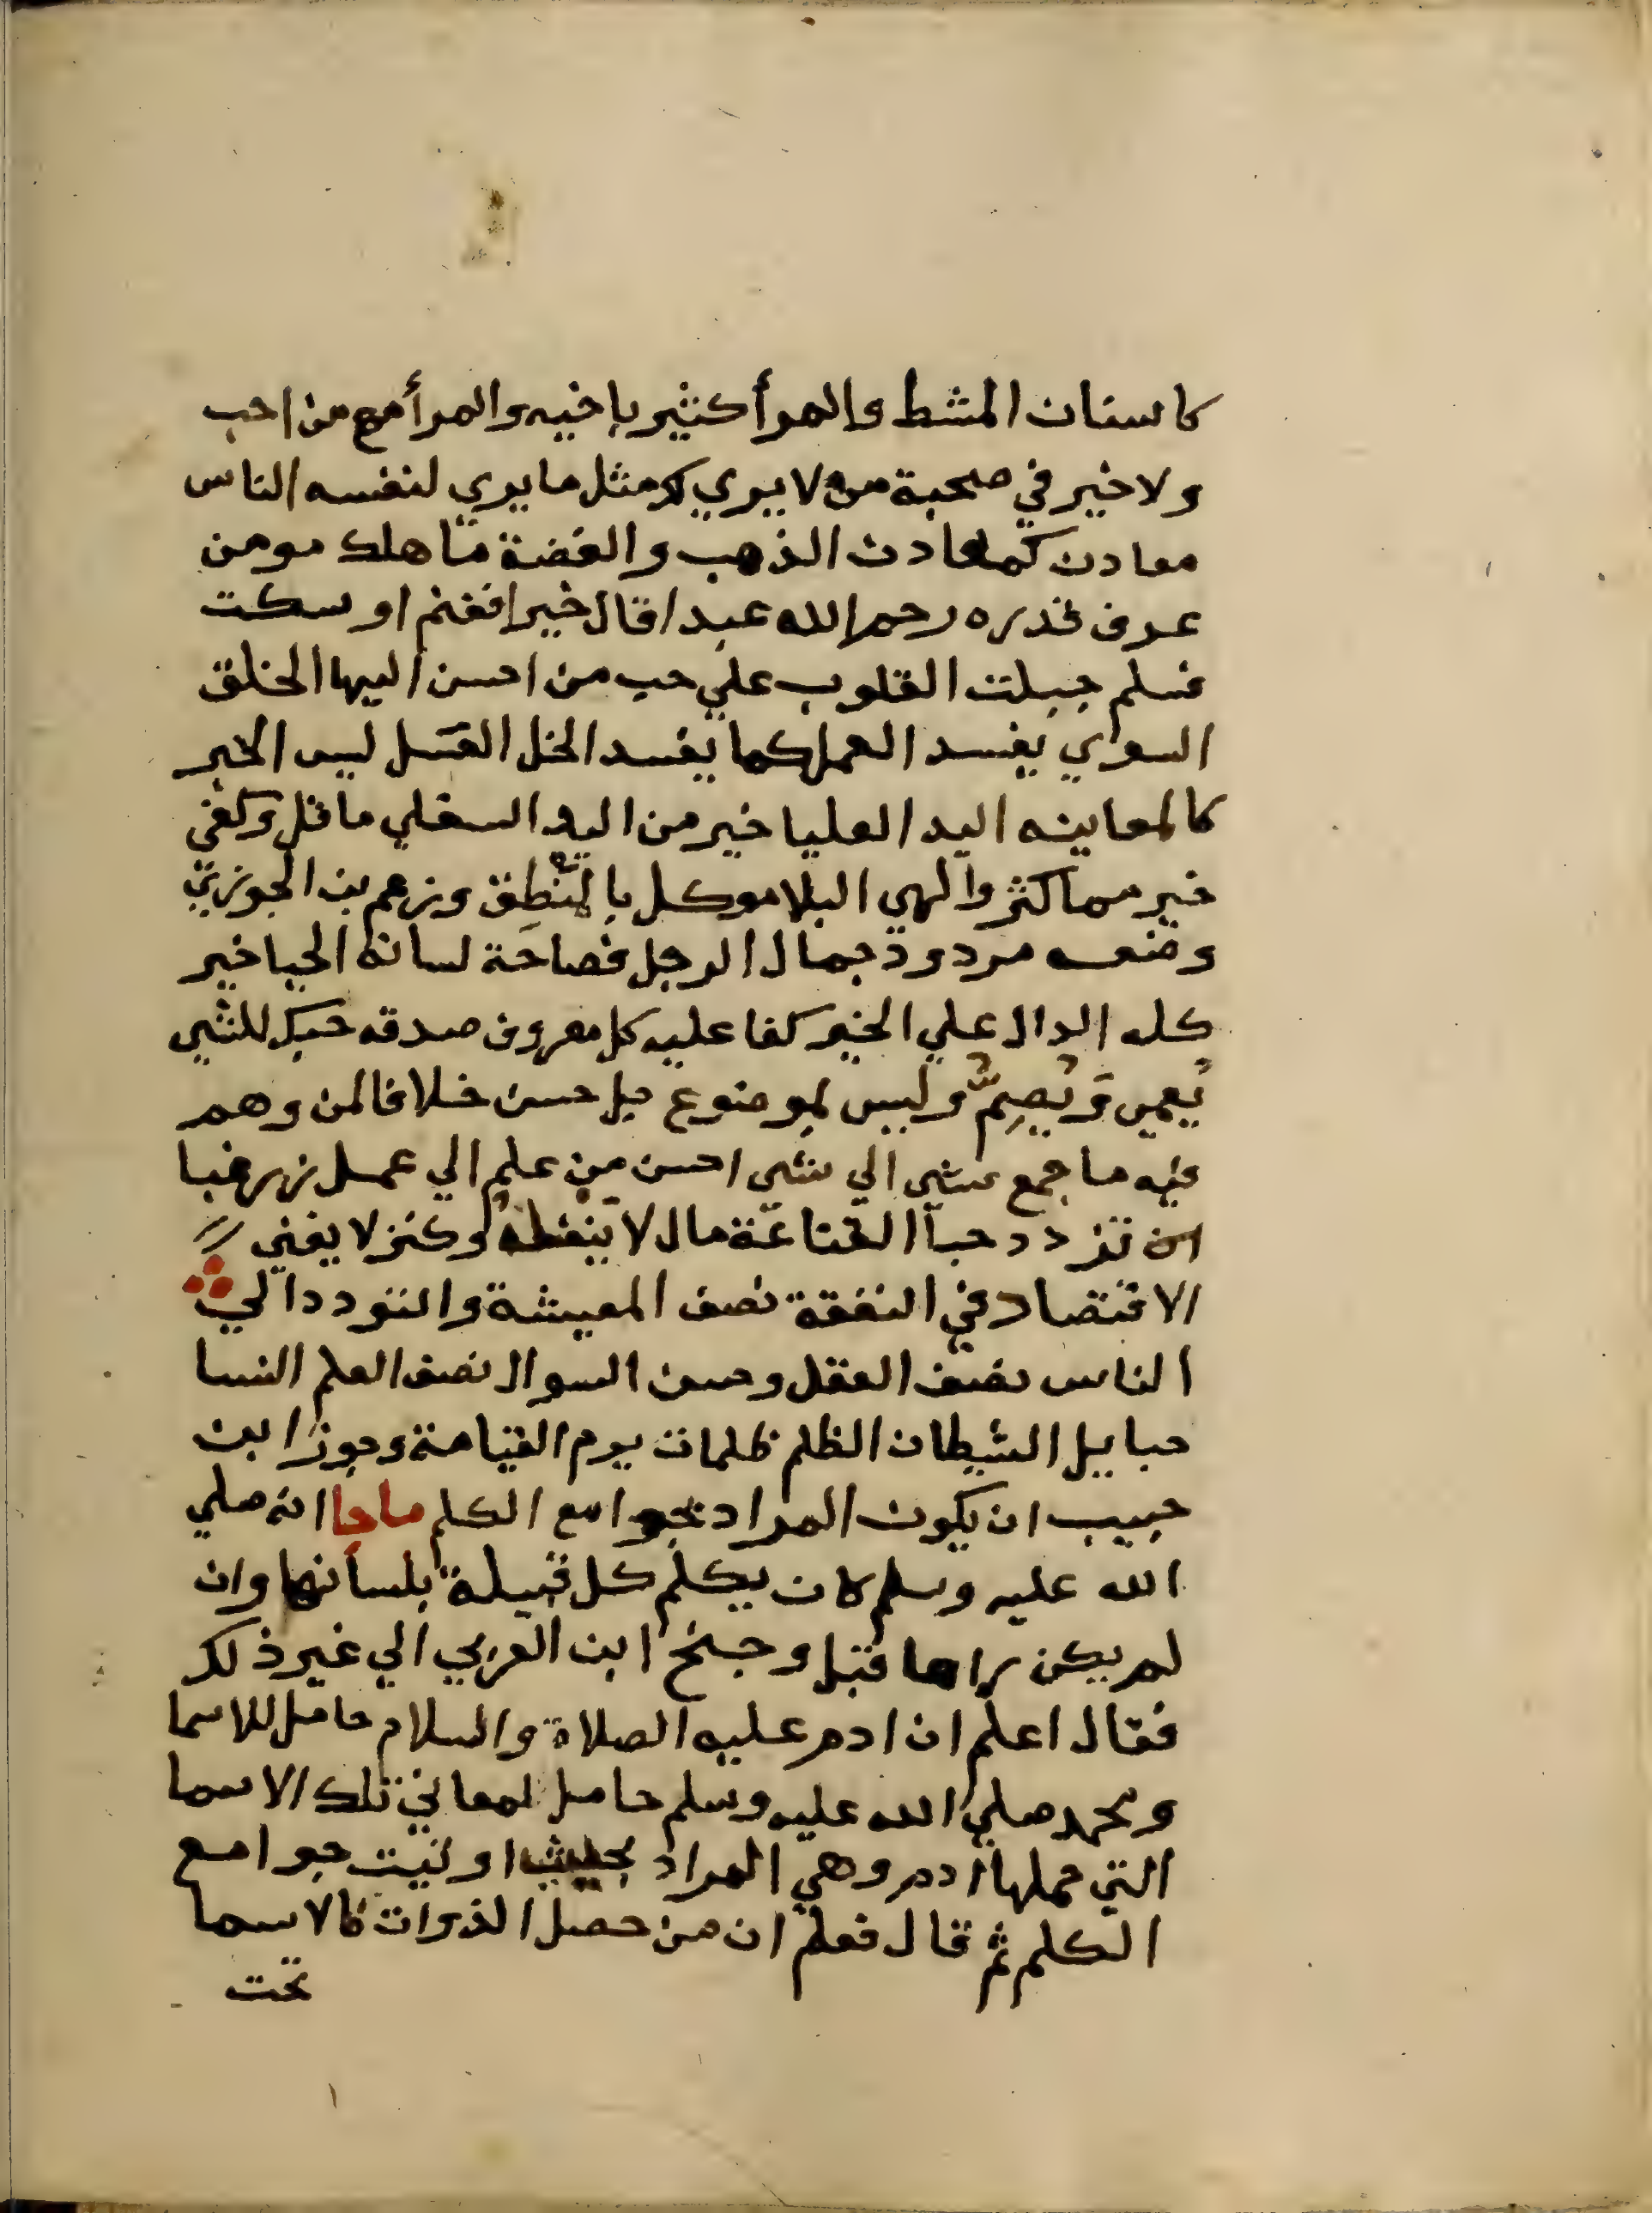 كاسنان المشط والمرأ كثير بإخيه والمرأ مع من احب
ولا خير في صحبة من لا يري لك مثل ما يري لنفسه الناس
معادن كمعادن الذهب والفضة ما هلك مومن
عرف قدره رحم الله عبدا قال خيرا فغنم او سكت
فسلم جبلت القلوب علي حب من احسن اليها الخلق
السوي يفسد العمل كما يفسد الخل العسل ليس الخبر
كالمعاينه اليد العليا خير من اليد السفلي ما قل وكفي
خير مما كثر والهي البلا موكل بالمنطق وزعم بن الجوزي
وضعه مردود جمال الرجل فصاحة لسانه الحيا خير
كله الدال علي الخير كفاعليه كل معروف صدقه حبك للشي
يُعمي وَيُصِمُّ وليس بموضوع بل حسن خلافا لمن وهم
فيه ما جمع شي الي شي احسن من علم الي عمل زر غبا
تزدد حبا القناعة مال لا ينفد وكنز لا يفني
الاقتصاد في النفقة نصف المعيشة والتودد الي
الناس نصف العقل وحسن السوال نصف العلم النسا
حبايل الشيطان الظلم ظلمات يوم القيامة وجوز ابن
حبيب ان يكون المراد بجوامع الكلم ما جا انه صلي
الله عليه وسلم كان يكلم كل قبيلة بلسانها وان
لم يكن راها قبل وجنح ابن العربي الي غير ذلك
فقال اعلم ان ادم عليه الصلاة والسلام حامل للاسما
ومحمد صلي الله عليه وسلم حامل لمعاني تلك الاسما
التي حملها ادم وهي المراد بحديث اوتيت جوامع
الكلم ثم قال فعلم ان من حصل الذوات فالاسما
تحت